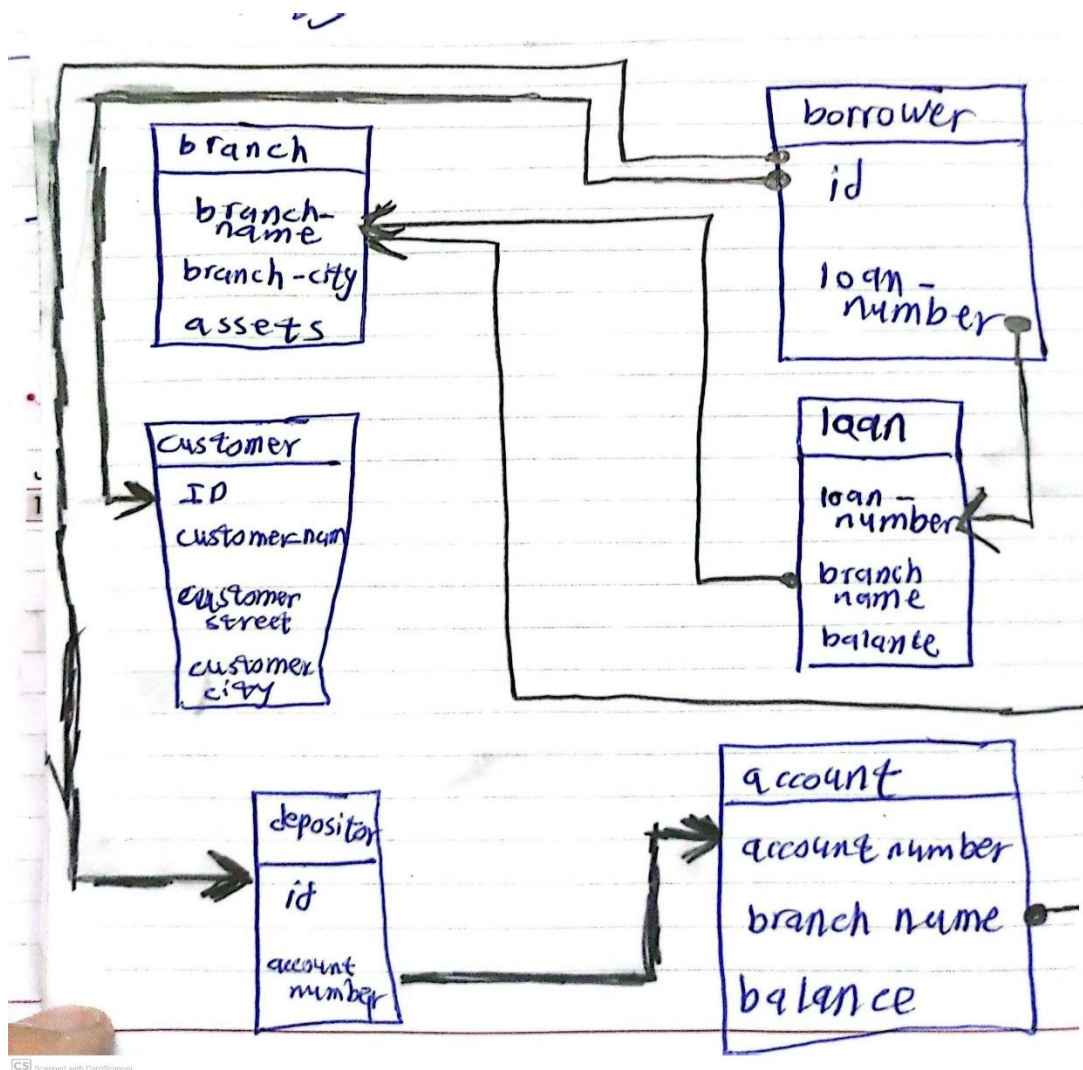 branch
branch-
name
branch-city
assets
borrower
id
loan-
number
customer
ID
customer-nam
customer
street
customer
city
loan
loan-
number
branch
name
balance
depositor
id
account
number
account
account number
branch name
balance
1
CS Scanned with CamScanner